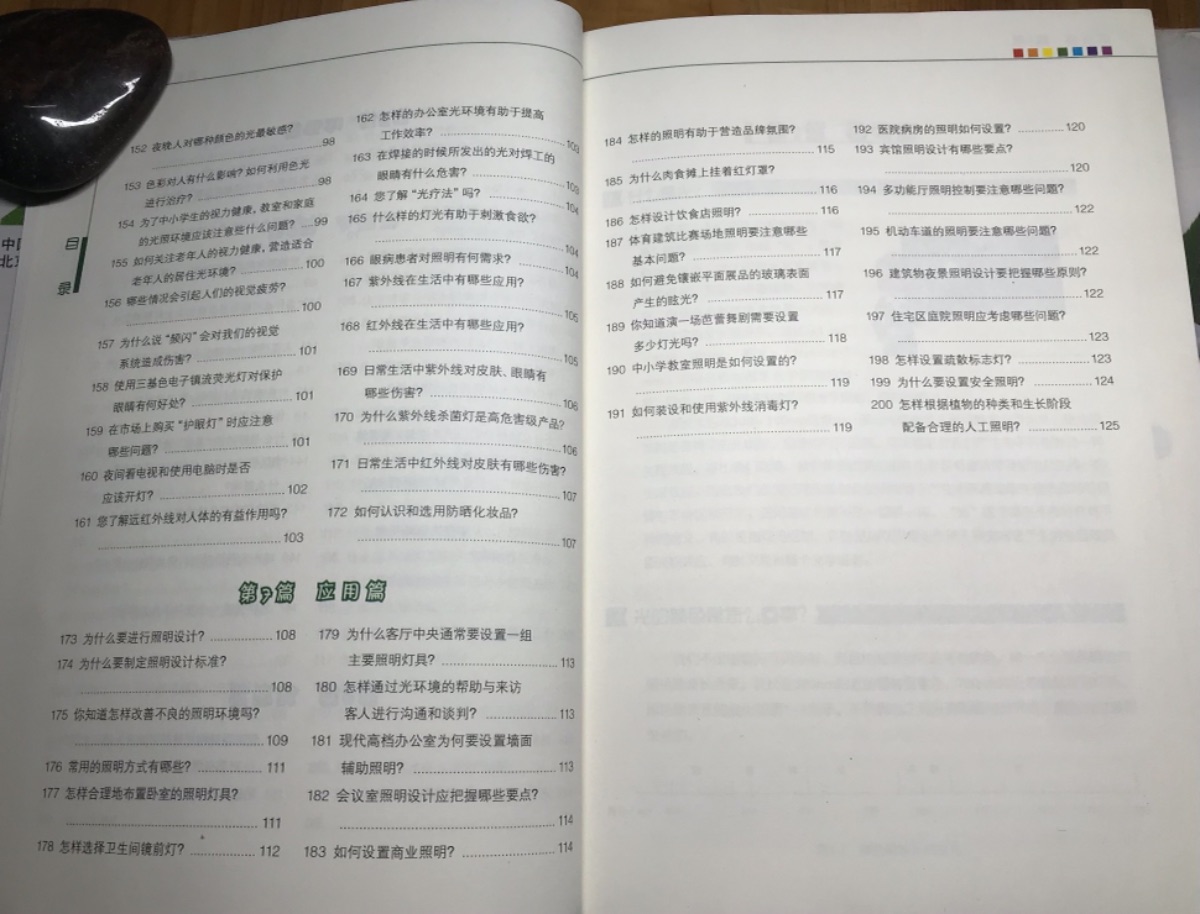 152 夜晚人对哪种颜色的光最敏感?
98
153 色彩对人有什么影响? 如何利用色光
进行治疗? 98
154 为了中小学生的视力健康,教室和家庭
的光照环境应该注意些什么问题? 99
155 如何关注老年人的视力健康,营造适合
老年人的居住光环境? 100
156 哪些情况会引起人们的视觉疲劳?
100
157 为什么说“频闪”会对我们的视觉
系统造成伤害? 101
158 使用三基色电子镇流荧光灯对保护
眼睛有何好处? 101
159 在市场上购买“护眼灯”时应注意
哪些问题? 101
160 夜间看电视和使用电脑时是否
应该开灯? 102
161 您了解远红外线对人体的有益作用吗?
103
162 怎样的办公室光环境有助于提高
工作效率? 103
163 在焊接的时候所发出的光对焊工的
眼睛有什么危害? 103
164 您了解“光疗法”吗? 104
165 什么样的灯光有助于刺激食欲?
104
166 眼病患者对照明有何需求? 104
167 紫外线在生活中有哪些应用?
105
168 红外线在生活中有哪些应用?
105
169 日常生活中紫外线对皮肤、眼睛有
哪些伤害? 106
170 为什么紫外线杀菌灯是高危害级产品?
106
171 日常生活中红外线对皮肤有哪些伤害?
107
172 如何认识和选用防晒化妆品?
107
目
录
中
北
第7篇 应用篇
173 为什么要进行照明设计? 108
174 为什么要制定照明设计标准?
108
175 你知道怎样改善不良的照明环境吗?
109
176 常用的照明方式有哪些? 111
177 怎样合理地布置卧室的照明灯具?
111
178 怎样选择卫生间镜前灯? 112
179 为什么客厅中央通常要设置一组
主要照明灯具? 113
180 怎样通过光环境的帮助与来访
客人进行沟通和谈判? 113
181 现代高档办公室为何要设置墙面
辅助照明? 113
182 会议室照明设计应把握哪些要点?
114
183 如何设置商业照明? 114
184 怎样的照明有助于营造品牌氛围?
115
185 为什么肉食摊上挂着红灯罩?
116
186 怎样设计饮食店照明? 116
187 体育建筑比赛场地照明要注意哪些
基本问题? 117
188 如何避免镶嵌平面展品的玻璃表面
产生的眩光? 117
189 你知道演一场芭蕾舞剧需要设置
多少灯光吗? 118
190 中小学教室照明是如何设置的?
119
191 如何装设和使用紫外线消毒灯?
119
192 医院病房的照明如何设置? 120
193 宾馆照明设计有哪些要点?
120
194 多功能厅照明控制要注意哪些问题?
122
195 机动车道的照明要注意哪些问题?
122
196 建筑物夜景照明设计要把握哪些原则?
122
197 住宅区庭院照明应考虑哪些问题?
123
198 怎样设置疏散标志灯? 123
199 为什么要设置安全照明? 124
200 怎样根据植物的种类和生长阶段
配备合理的人工照明? 125